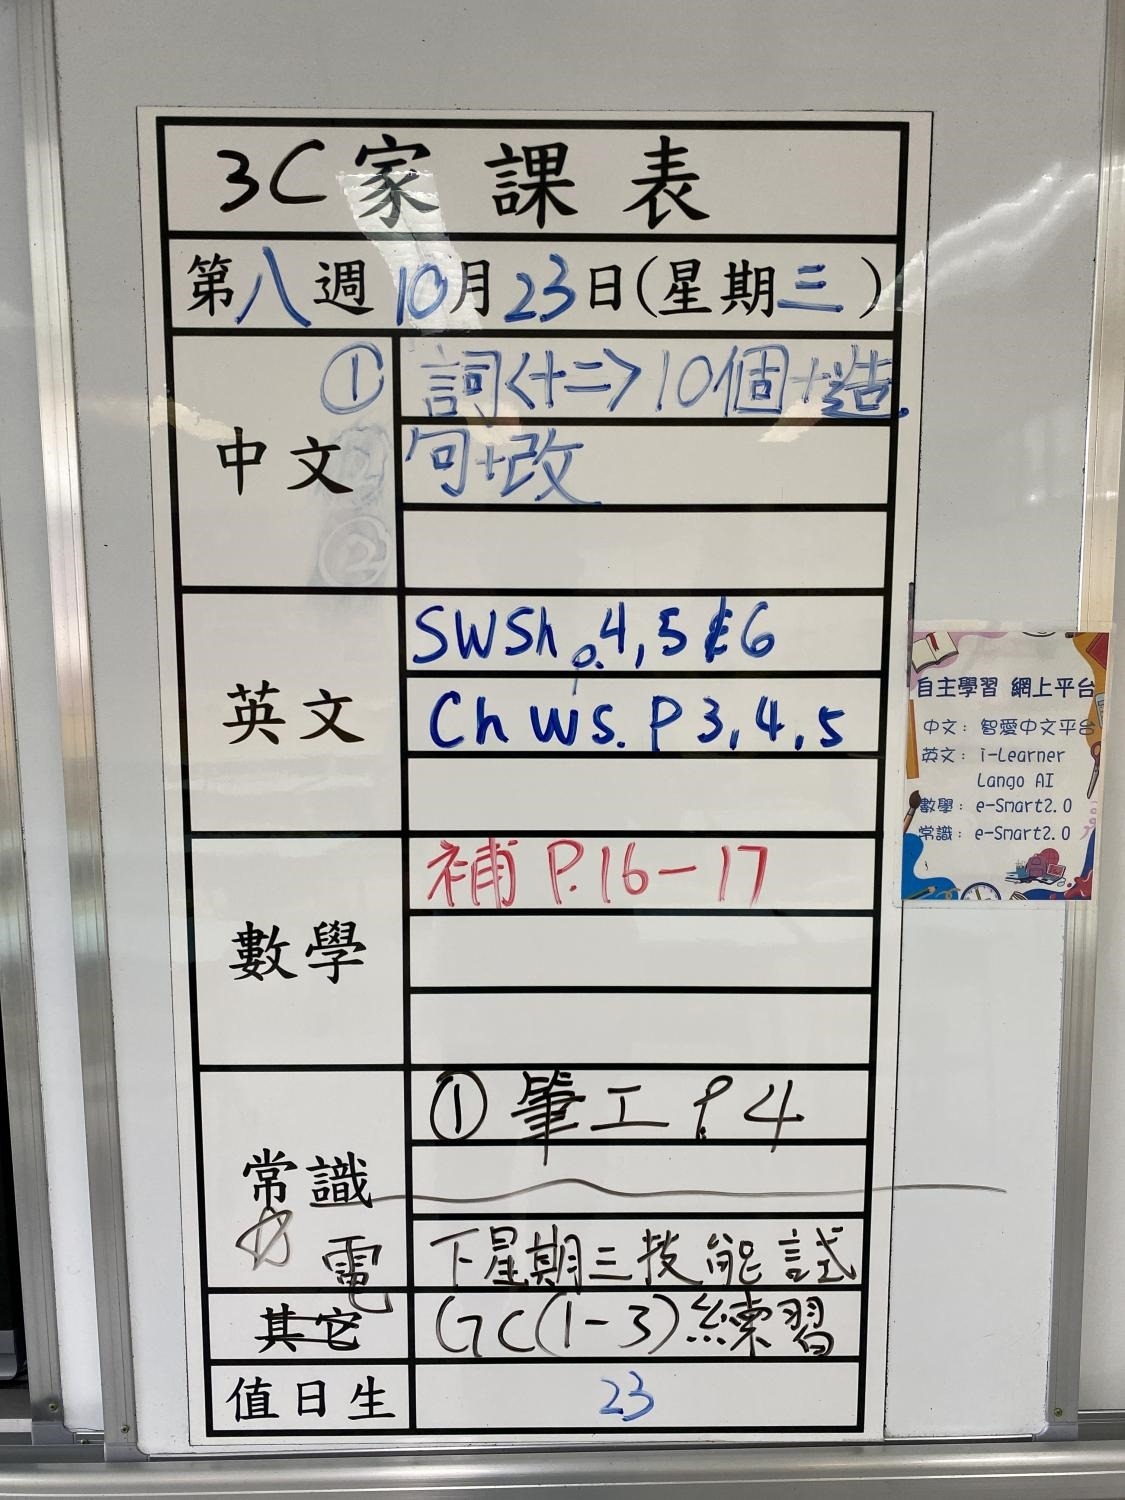 3C家課表
第八週10月23日(星期三)
中文
① 詞<十二>10個+造
句+改
②
英文
SWSh p.4,5&6
Ch WS. P 3,4,5
數學
補 P.16-17
常識
① 筆工 P.4
☆ 電
下星期三技能試
其它
GC(1-3)練習
值日生
23
自主學習 網上平台
中文: 智愛中文平台
英文: i-Learner
Lango AI
數學: e-Smart2.0
常識: e-Smart2.0